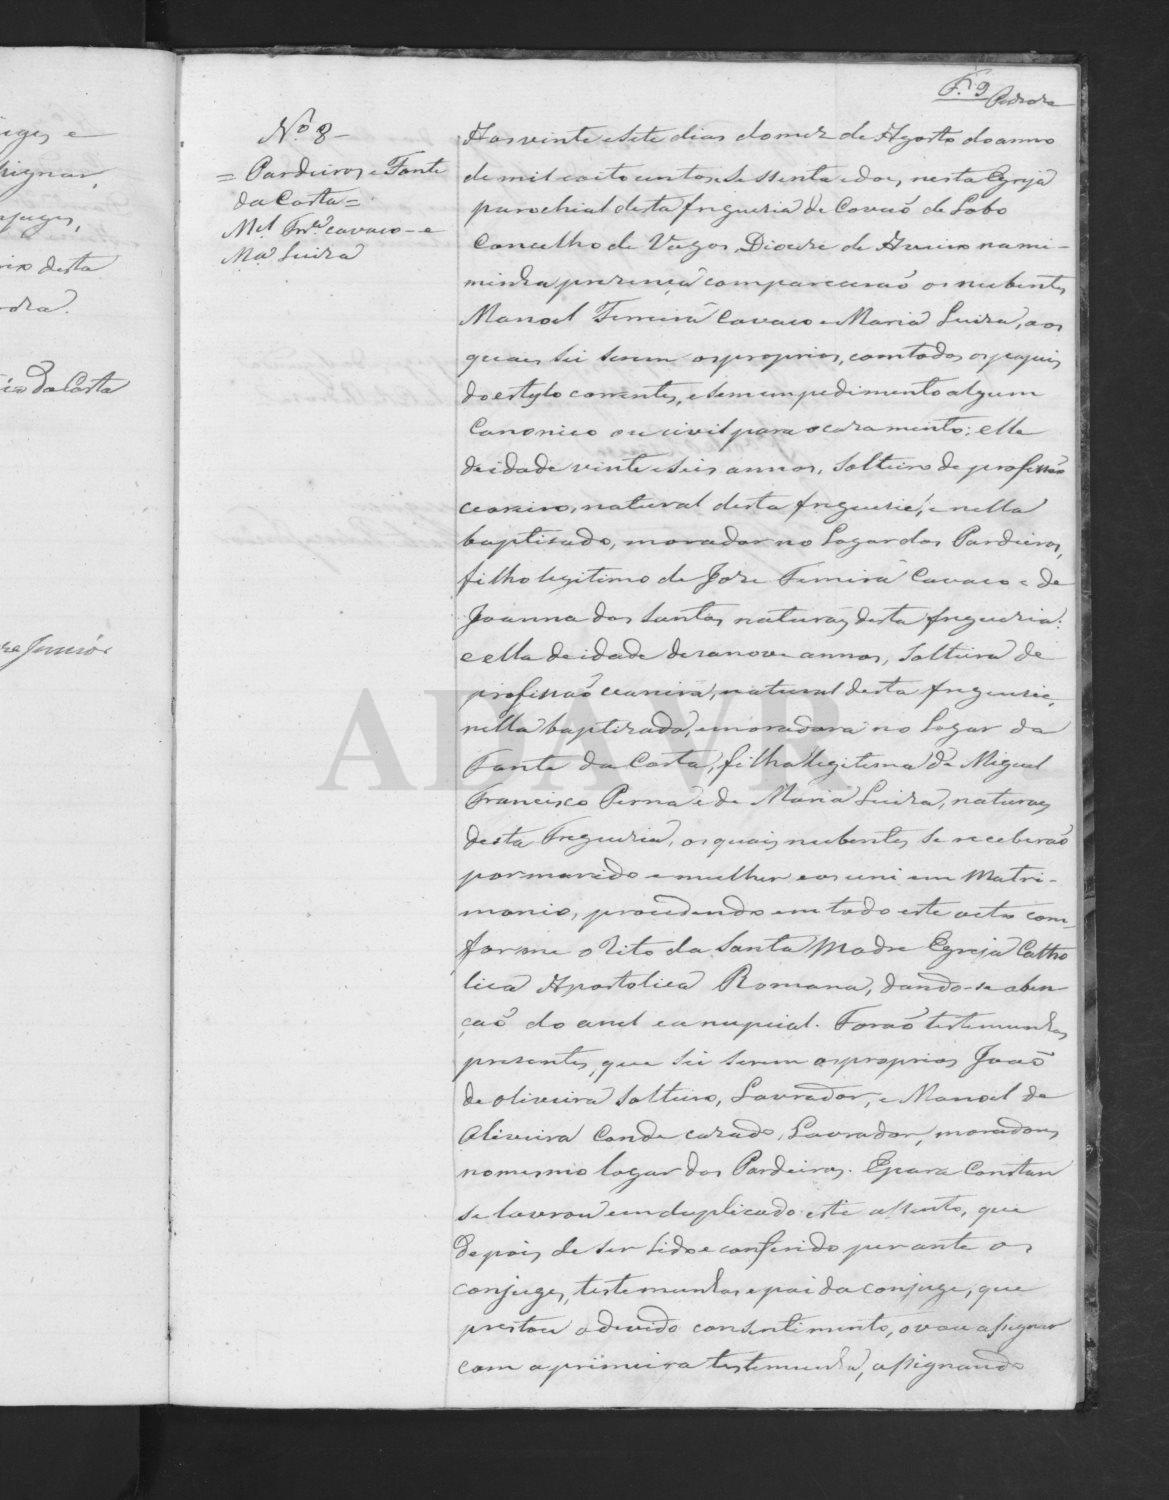 F. 9 Pedroza
ADAVR
Nº 8 -
= Pardeiros e Fonte
da Costa =
Mel Frra cavaco - e
Ma Luiza
Aos vinte e sete dias do mez de Agosto do anno
de mil e oito centos e se ssenta e dous, nesta Egreja
parochial desta freguezia de Covaõ de Lobo
Concelho de Vagos, Diocese de Aveiro na mi-
minha presença compareceraõ os nubentes
Manoel Ferreira Cavaco e Maria Luiza, aos
quaes sei serem os proprios, com todos os papeis
do estylo correntes, e sem impedimento algum
Canonico ou civil para o cazamento: elle
de idade vinte e seis annos, Solteiro de profissaõ
ceareiro, natural desta freguezia, e nella
baptisado, morador no Logar dos Pardeiros,
filho legitimo de Joze Ferreira Cavaco e de
Joanna dos Santos naturaes desta freguezia:
e ella de idade dezanove annos, Solteira de
profissaõ ceareira, natural desta freguezia,
nella baptizada, e moradora no logar da
Fonte da Costa, filha legitima de Miguel
Francisco Perna e de Maria Luiza, naturaes
desta Freguezia, os quais nubentes se receberaõ
por marido e mulher e os uni em Matri-
monio, procedendo em todo este acto con-
forme o Rito da Santa Madre Egreja Catho
lica Apostolica Romana, dando-se a ben
çaõ do anel e a nupcial. Foraõ testemunhas
presentes, que sei serem os proprios Joaõ
de Oliveira Solteiro, Lavrador, e Manoel de
Oliveira Conde cazado, Lavrador, moradores
no mesmo logar dos Pardeiros. E para Constar
se lavrou em duplicado este assento, que
depois de ser lido e conferido perante os
conjuges, testemunhas e pai da conjuge, que
prestou o devido consentimento, o vou assignar
com a primeira testemunha, assignando